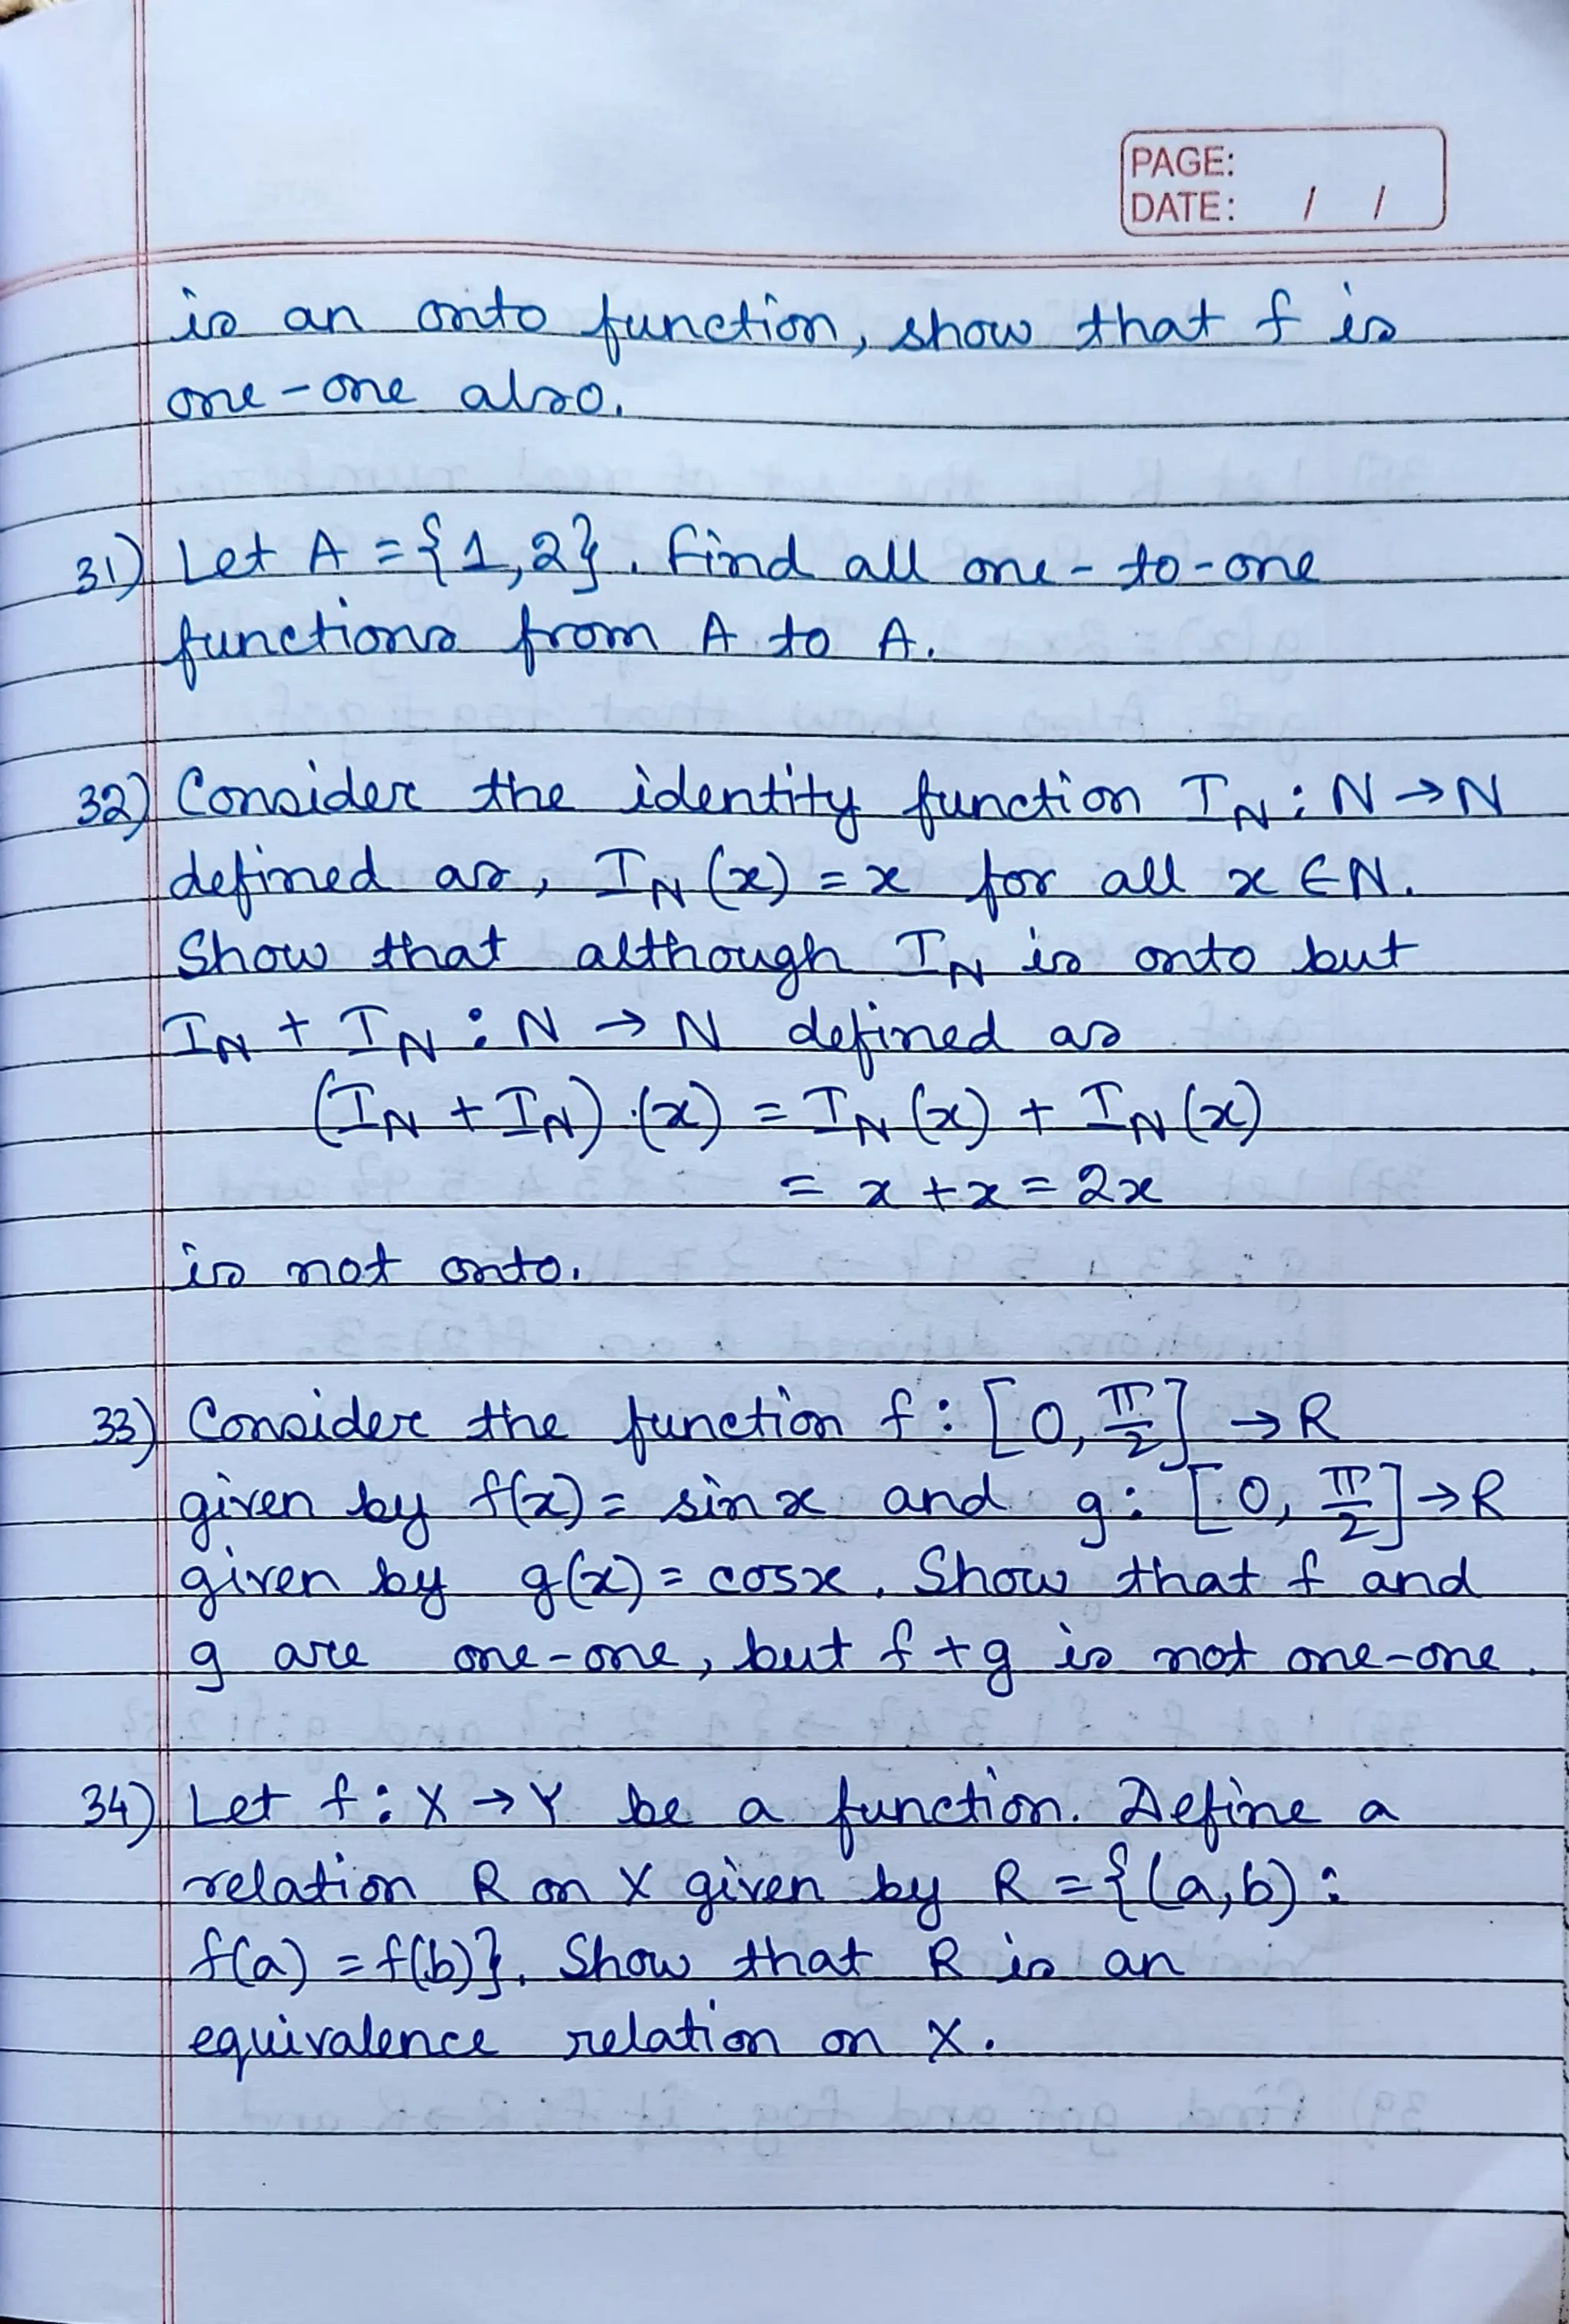 PAGE:
DATE: / /
is an onto function, show that f is
one-one also.
31) Let A = {1,2}. Find all one-to-one
functions from A to A.
32) Consider the identity function I_N : N → N
defined as, I_N (x) = x for all x ∈ N.
Show that although I_N is onto but
I_N + I_N : N → N defined as
(I_N + I_N).(x) = I_N (x) + I_N (x)
= x + x = 2x
is not onto.
33) Consider the function f : [0, π/2] → R
given by f(x) = sin x and g : [0, π/2] → R
given by g(x) = cosx. Show that f and
g are one-one, but f + g is not one-one.
34) Let f : X → Y be a function. Define a
relation R on X given by R = {(a,b) :
f(a) = f(b)}. Show that R is an
equivalence relation on X.